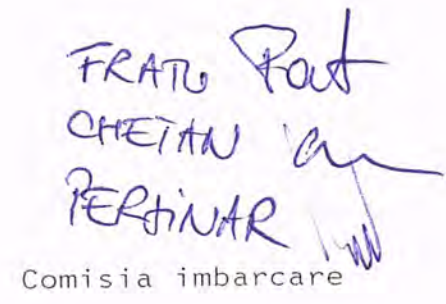 FRATU
CHETAN
PERJINAR
Comisia imbarcare